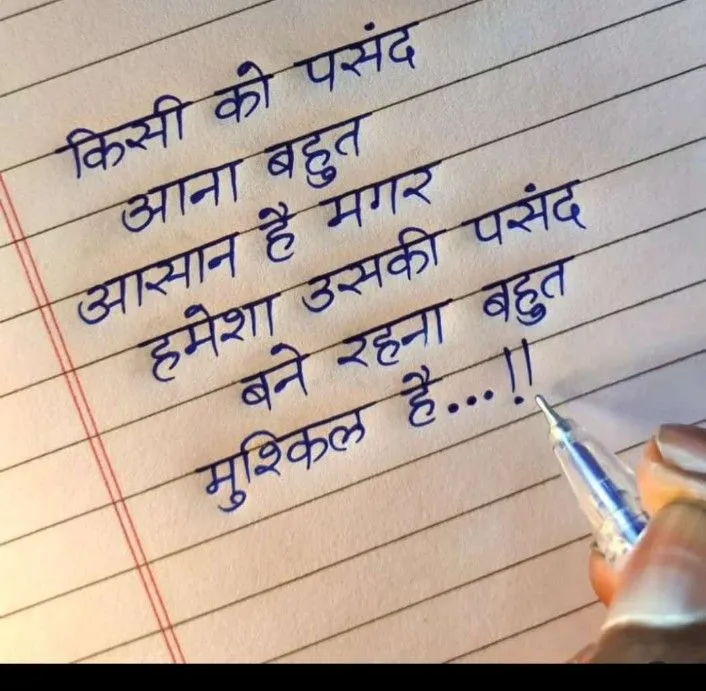 किसी को पसंद
आना बहुत
आसान है मगर
हमेशा उसकी पसंद
बने रहना बहुत
मुश्किल है...!!